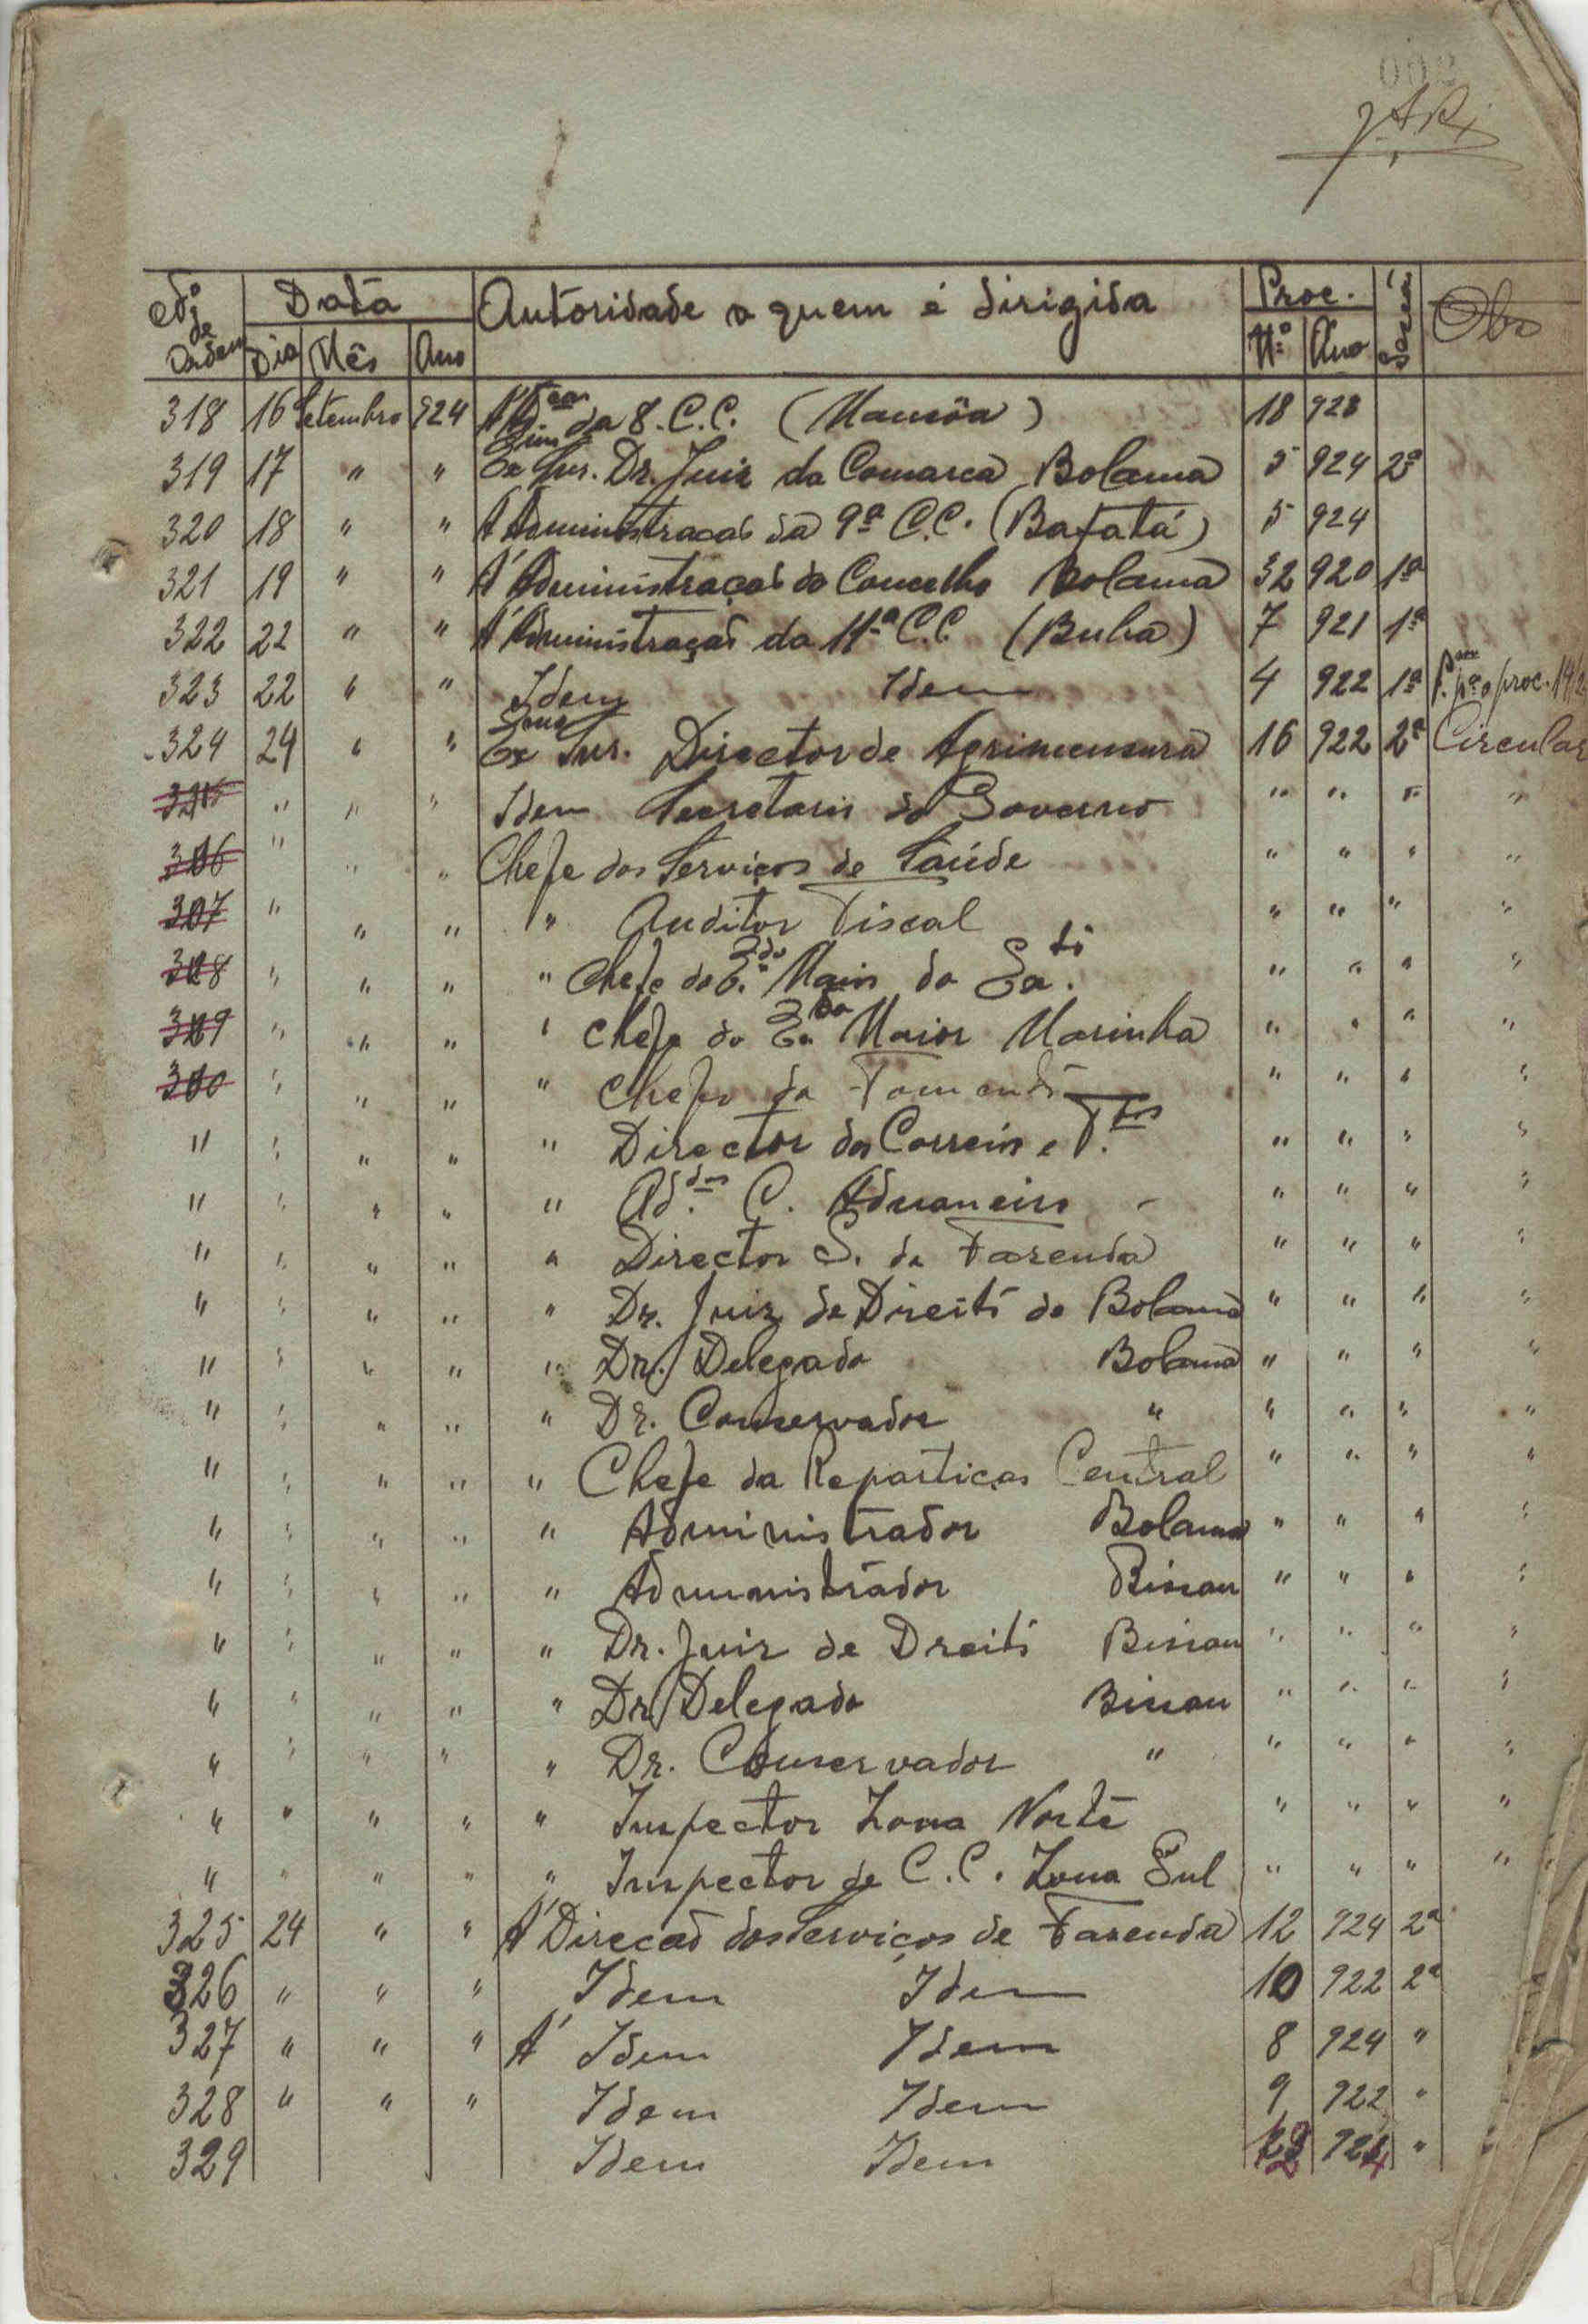 002
Nº de Ordem Data Autoridade a quem é dirigida Proc. Secçã Obs
Dia Mês Ano Nº Ano
318 16 Setembro 924 da 8. C.C. (Mansôa) 18 923
319 17 " " Exmo Snr. Dr. Juiz da Comarca Bolama 5 924 2ª
320 18 " " Á Administracaõ da 9ª C.C. (Bafatá) 5 924
321 19 " " Á Administraçaõ do Concelho Bolama 32 920 1ª
322 22 " " Á Administraçaõ da 11ª C.C. (Buba) 7 921 1ª
323 22 " " Idem Idem 4 922 1ª pª o proc.
324 24 " " Exmo Snr. Director de Agrimensura 16 922 2ª Circular
" " " Idem Secretario do Governo " " " "
306 " " " Chefe dos Serviços de Saúde " " " "
307 " " " " Auditor Fiscal " " " "
308 " " " " Chefe do E.do Maior do " " " "
309 " " " " Chefe do E.do Maior Marinha " " " "
300 " " " " Chefe do Fomento " " " "
" " " " " Director dos Correios e T.fos " " " "
" " " " " Ad.dor C. Aduaneiro " " " "
" " " " " Director S. de Fazenda " " " "
" " " " " Dr. Juiz de Direito de Bolama " " " "
" " " " " Dr. Delegado Bolama " " " "
" " " " " Dr. Conservador " " " " "
" " " " " Chefe da Repartiçao Central " " " "
" " " " " Administrador Bolama " " " "
" " " " " Administrador Bissau " " " "
" " " " " Dr. Juiz de Dreito Bissau " " " "
" " " " " Dr. Delegado Bissau " " " "
" " " " " Dr. Conservador " " " " "
" " " " " Inspector Zona Norte " " " "
" " " " " Inspector de C.C. Zona Sul " " " "
325 24 " " Á Direcaõ dos Serviços de Fazenda 12 924 2ª
326 " " " Idem Idem 10 922 2ª
327 " " " Á Idem Idem 8 924 "
328 " " " Idem Idem 9 922 "
329 Idem Idem 924 "